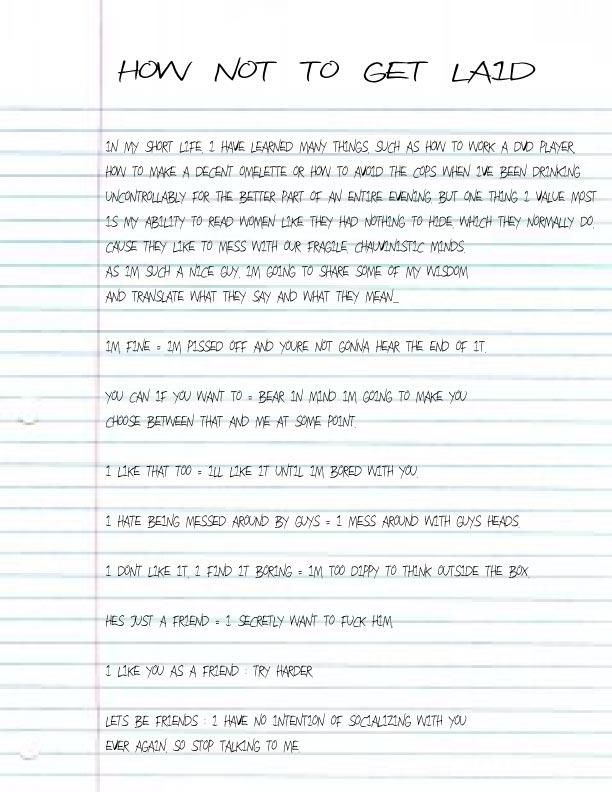 HOW NOT TO GET LAID
IN MY SHORT LIFE, I HAVE LEARNED MANY THINGS, SUCH AS HOW TO WORK A DVD PLAYER,
HOW TO MAKE A DECENT OMELETTE OR HOW TO AVOID THE COPS WHEN IVE BEEN DRINKING
UNCONTROLLABLY FOR THE BETTER PART OF AN ENTIRE EVENING. BUT ONE THING I VALUE MOST
IS MY ABILITY TO READ WOMEN LIKE THEY HAD NOTHING TO HIDE, WHICH THEY NORMALLY DO,
CAUSE THEY LIKE TO MESS WITH OUR FRAGILE, CHAUVINISTIC MINDS.
AS IM SUCH A NICE GUY, IM GOING TO SHARE SOME OF MY WISDOM
AND TRANSLATE WHAT THEY SAY AND WHAT THEY MEAN...
IM FINE = IM PISSED OFF AND YOURE NOT GONNA HEAR THE END OF IT.
YOU CAN IF YOU WANT TO = BEAR IN MIND IM GOING TO MAKE YOU
CHOOSE BETWEEN THAT AND ME AT SOME POINT.
I LIKE THAT TOO = ILL LIKE IT UNTIL IM BORED WITH YOU.
I HATE BEING MESSED AROUND BY GUYS = I MESS AROUND WITH GUYS HEADS.
I DONT LIKE IT, I FIND IT BORING = IM TOO DIPPY TO THINK OUTSIDE THE BOX.
HES JUST A FRIEND = I SECRETLY WANT TO FUCK HIM.
I LIKE YOU AS A FRIEND : TRY HARDER
LETS BE FRIENDS : I HAVE NO INTENTION OF SOCIALIZING WITH YOU
EVER AGAIN, SO STOP TALKING TO ME.